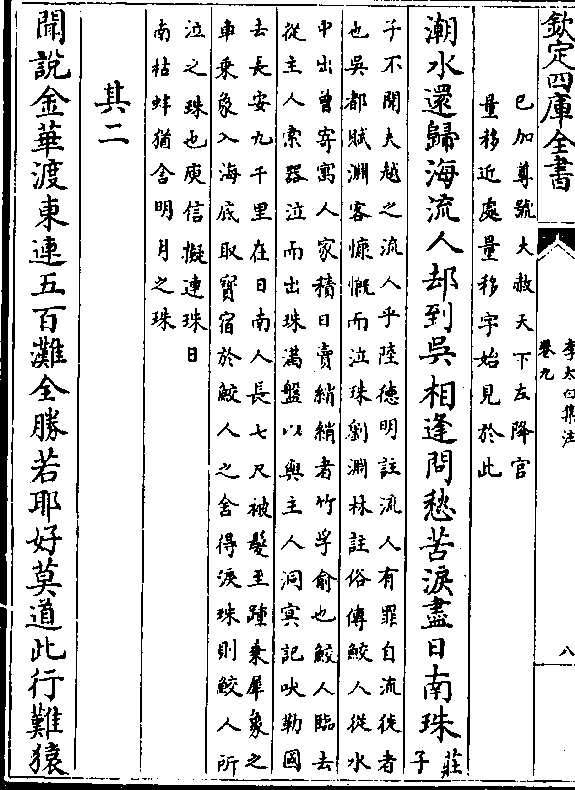 欽定四庫全書
李太白集注
卷九
八
已加尊號大赦天下左降官
量移近處量移字始見於此
潮水還歸海流人却到吳相逢問愁苦淚盡日南珠
莊
子
子不聞夫越之流人乎陸德明註流人有罪自流徙者
也吳都賦淵客慷慨而泣珠劉淵林註俗傳鮫人從水
中出曾寄寓人家積日賣綃綃者竹孚俞也鮫人臨去
從主人索器泣而出珠滿盤以與主人洞冥記吠勒國
去長安九千里在日南人長七尺被髮至踵乗犀象之
車乗象入海底取寳宿於鮫人之舍得淚珠則鮫人所
泣之珠也庾信擬連珠日
南枯蚌猶含明月之珠
其二
聞說金華渡東連五百灘全勝若耶好莫道此行難猿